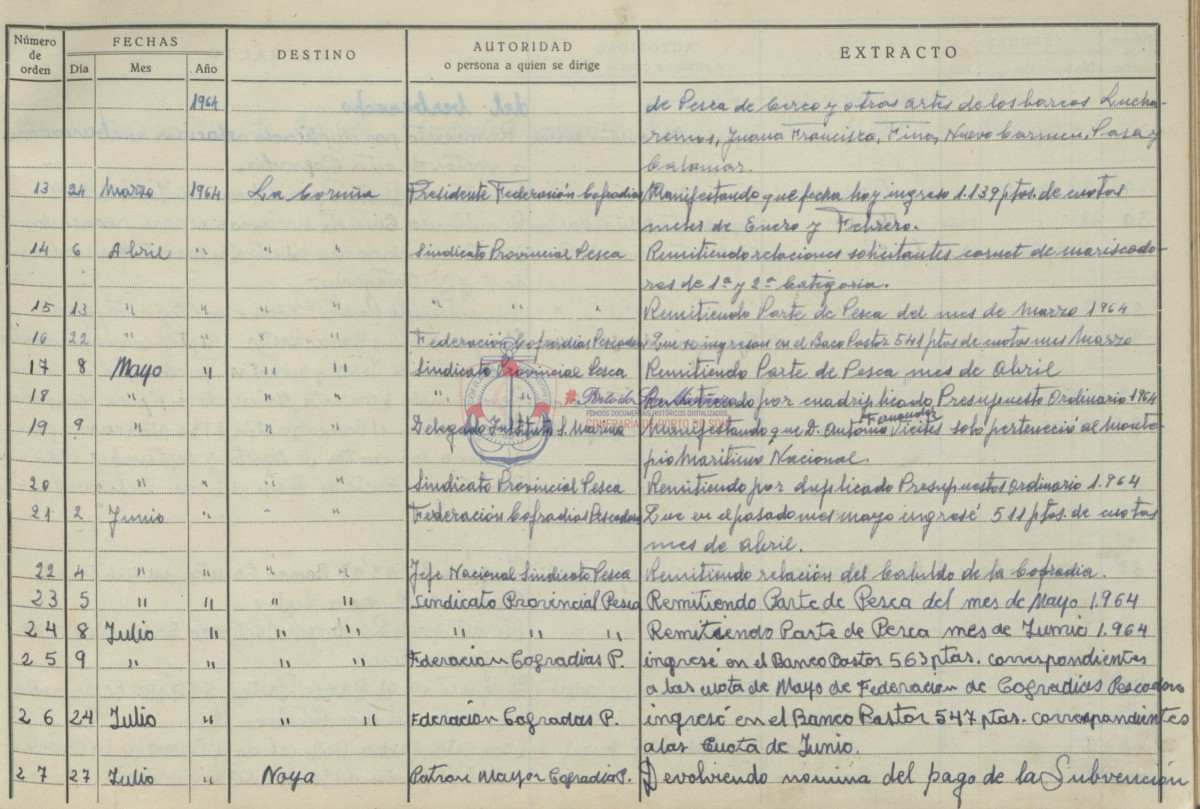 Número de orden FECHAS DESTINO AUTORIDAD o persona a quien se dirige EXTRACTO
Día Mes Año
1964 de Pesca de Cerco y otras artes de los barcos Lucha-
remos, Juana Francisca, Fina, Nuevo Carmen, Casa y
Calamar.
13 24 Marzo 1964 La Coruña Presidente Federación Cofradias Manifestando que fecha hoy ingreso 1.139 ptos. de cuotas
meses de Enero y Febrero.
14 6 Abril " " " Sindicato Provincial Pesca Remitiendo relaciones solicitantes carnet de mariscado-
ras de 1ª y 2ª Categoria.
15 13 " " " " " " " Remitiendo Parte de Pesca del mes de Marzo 1964
16 22 " " " " Federación Cofradias Pescadores Que se ingreson en el Baco Pastor 541 ptos de cuotas mes Marzo
17 8 Mayo " " " Sindicato Provincial Pesca Remitiendo Parte de Pesca mes de Abril
18 " " " " " " por cuadriplicado Presupuesto Ordinario 1964
19 9 " " " " Delegado Instituto S. Marina Manifestando que D. Antonio Vicites solo perteneció al Monte-
pio Maritimo Nacional.
20 " " " " Sindicato Provincial Pesca Remitiendo por duplicado Presupuestos Ordinario 1.964
21 2 Junio " " " Federación Cofradias Pescadores Que en el pasado mes mayo ingresé 511 ptos. de cuotas
mes de abril.
22 4 " " " " Jefe Nacional Sindicato Pesca Remitiendo relación del Cabildo de la Cofradia.
23 5 " " " " Sindicato Provincial Pesca Remitiendo Parte de Pesca del mes de Mayo 1.964
24 8 Julio " " " " " " Remitiendo Parte de Pesca mes de Junio 1.964
25 9 " " " " Federacion Cofradias P. ingresé en el Banco Pastor 563 ptas. correspondientes
a las cuota de Mayo de Federacion de Cofradias Pescadores
26 24 Julio " " " Fderacion Cofradas P. ingresó en el Banco Pastor 547 ptas. correspondientes
a las Cuota de Junio.
27 27 Julio " Noya Patron Mayor Cofradia P. Devolviendo nomina del pago de la Subvención
FONDOS DOCUMENTAIS HISTÓRICOS DIXITALIZADOS
CONFRARÍA DE PORTO DO SON